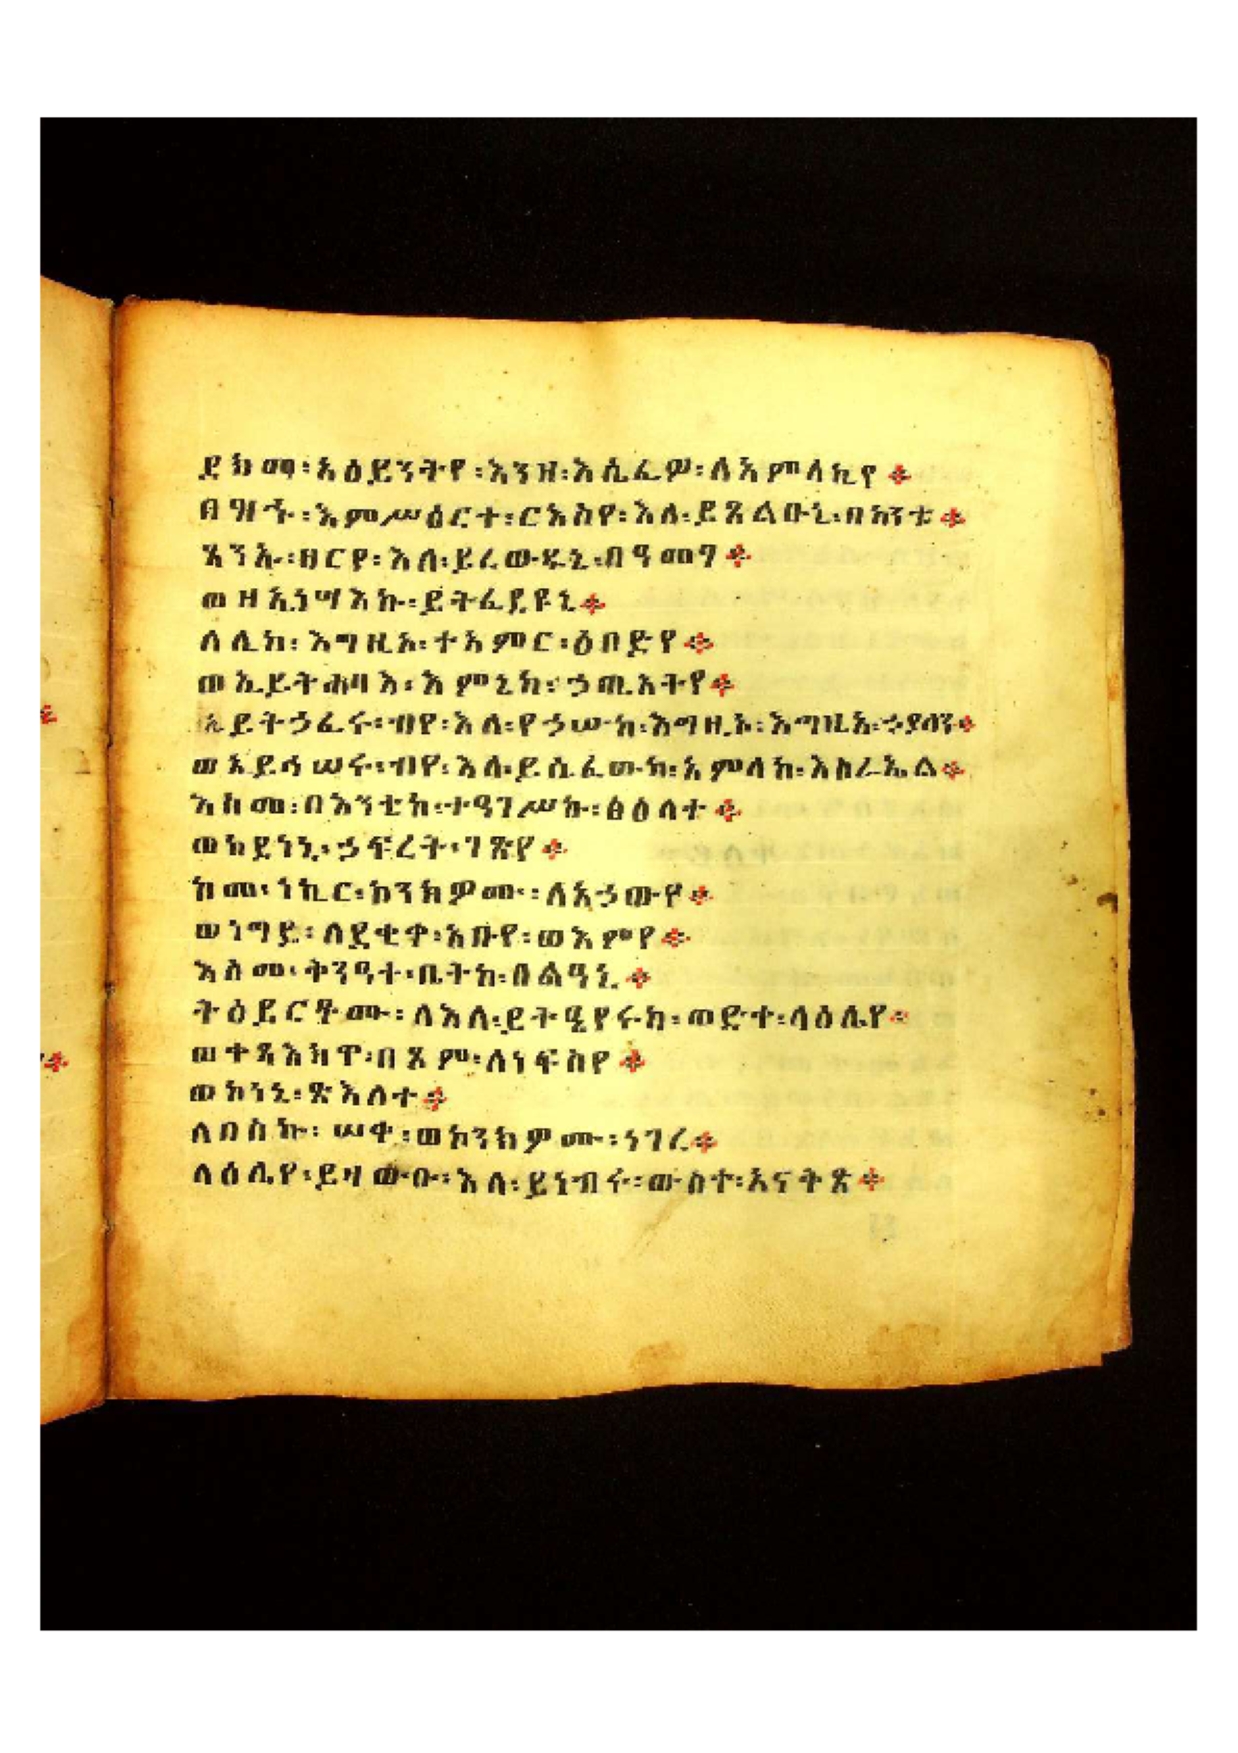 ደክማ፡አዕይንትየ፡እንዘ፡እሴፈዎ፡ለአምላኪየ።
በዝኁ፡እምሥዕርተ፡ርእስየ፡እለ፡ይጸልዑኒ፡በከንቱ።
ጸንኡ፡ፀርየ፡እለ፡ይረውዱኒ፡በዓመፃ።
ወዘኢነሣእኩ፡ይትፈደዩኒ።
ለሊከ፡እግዚኦ፡ተአምር፡ዕበድየ።
ወኢይትሐባእ፡እምኔከ፡ኃጢአትየ።
ኢይትኃፈሩ፡ብየ፡እለ፡የኃሡከ፡እግዚኦ፡እግዚአ፡ኃያላን።
ወኢይኅሠሩ፡ብየ፡እለ፡ይሴፈውከ፡አምላከ፡እስራኤል።
እስመ፡በእንቲከ፡ተዓገሥኩ፡ፅዕለተ።
ወከደነኒ፡ኃፍረት፡ገጽየ።
ከመ፡ነኪር፡ኮንክዎሙ፡ለአኃውየ።
ወነግድ፡ለደቂቀ፡አቡየ፡ወእምየ።
እስመ፡ቅንዓተ፡ቤትከ፡በልዓኒ።
ትዕይርቶሙ፡ለእለ፡ይትዔየሩከ፡ወድቀ፡ላዕሌየ።
ወተጻእክዋ፡በጾም፡ለነፍስየ።
ወኮነኒ፡ጽእለተ።
ለበስኩ፡ሠቀ፡ወኮንክዎሙ፡ነገረ።
ላዕሌየ፡ይዛውዑ፡እለ፡ይነብሩ፡ውስተ፡አናቅጽ።